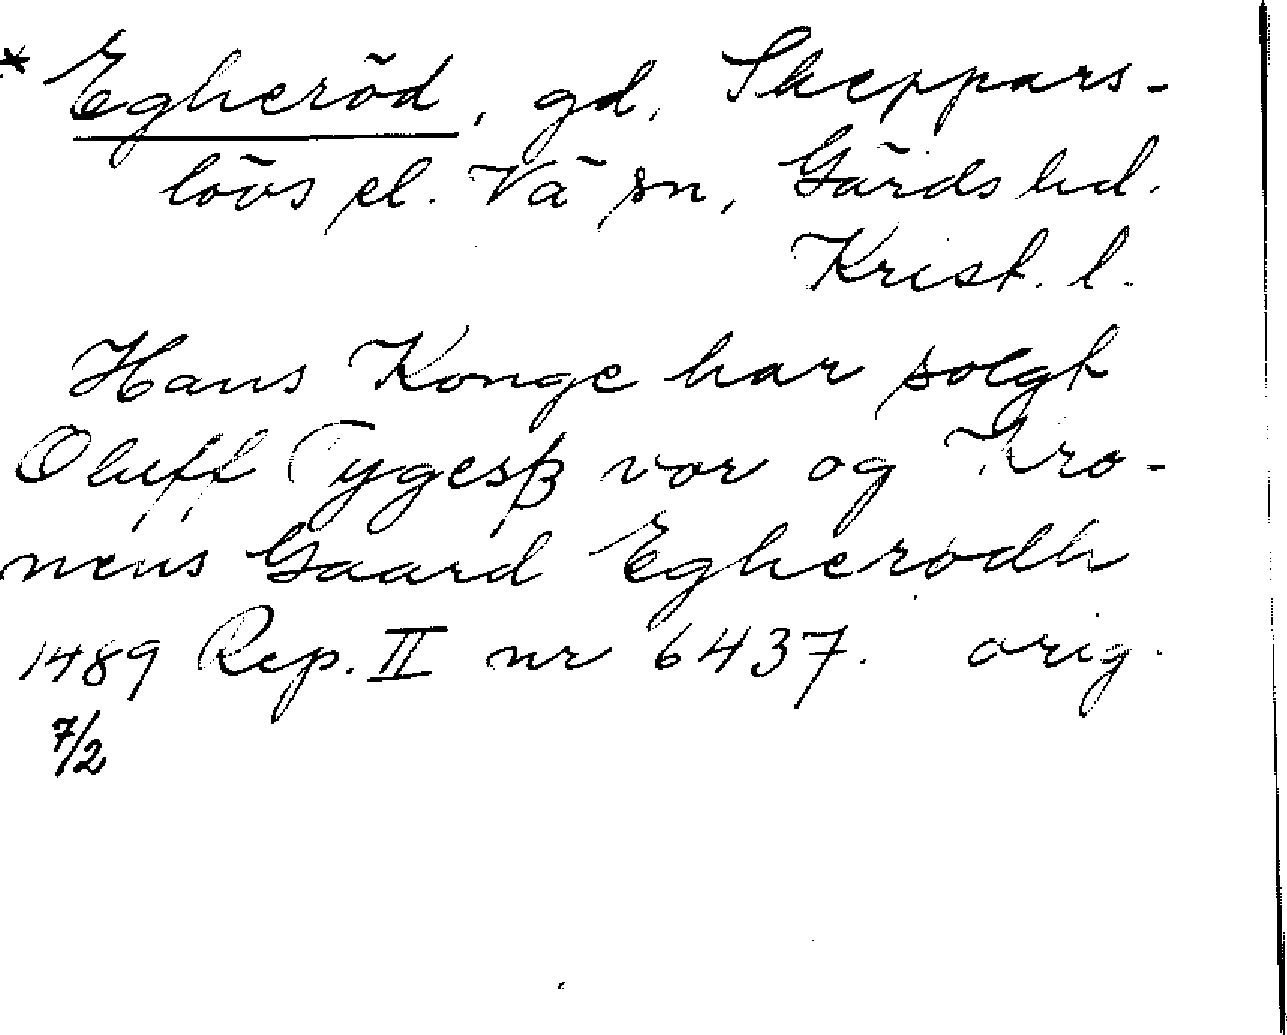 * Egheröd, gd, Skeppars-
lövs el. Vä sn, Gärds hd.
Krist. l.
Hans Konge har solgt
Oluff Tygesß vor og Kro-
nens Gaard Egherødh
1489 Rep. II nr 6437. orig.
7/2